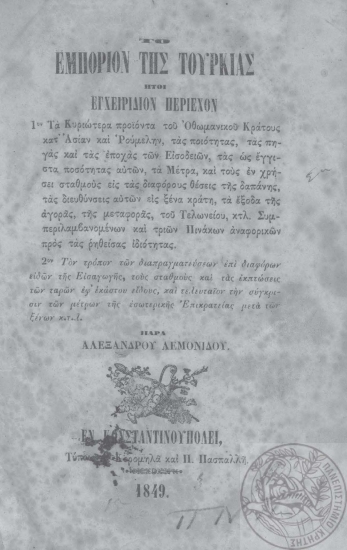 ΤΟ
ΕΜΠΟΡΙΟΝ ΤΗΣ ΤΟΥΡΚΙΑΣ
ΗΤΟΙ
ΕΓΧΕΙΡΙΔΙΟΝ ΠΕΡΙΕΧΟΝ
1ον Τὰ Κυριώτερα προϊόντα τοῦ Ὀθωμανικοῦ Κράτους
κατ' Ἀσίαν καὶ Ῥούμελην, τὰς ποιότητας, τὰς πη-
γὰς καὶ τὰς ἐποχὰς τῶν Εἰσοδειῶν, τὰς ὡς ἔγγι-
στα ποσότητας αὐτῶν, τὰ Μέτρα, καὶ τοὺς ἐν χρή-
σει σταθμοὺς εἰς τὰς διαφόρους θέσεις τῆς δαπάνης,
τὰς διευθύνσεις αὐτῶν εἰς ξένα κράτη, τὰ ἔξοδα τῆς
ἀγορᾶς, τῆς μεταφορᾶς, τοῦ Τελωνείου, κτλ. Συμ-
περιλαμβανομένων καὶ τριῶν Πινάκων ἀναφορικῶν
πρὸς τὰς ῥηθείσας ἰδιότητας.
2ον Τὸν τρόπον τῶν διαπραγματεύσεων ἐπὶ διαφόρων
εἰδῶν τῆς Εἰσαγωγῆς, τοὺς σταθμοὺς καὶ τὰς ἐκπτώσεις
τῶν ταρῶν ἐφ' ἑκάστου εἴδους, καὶ τελευταῖον τὴν σύγκρι-
σιν τῶν μέτρων τῆς ἐσωτερικῆς Ἐπικρατείας μετὰ τῶν
ξένων κ.τ.λ.
ΠΑΡΑ
ΑΛΕΞΑΝΔΡΟΥ ΛΕΜΟΝΙΔΟΥ.
ΕΝ ΚΩΝΣΤΑΝΤΙΝΟΥΠΟΛΕΙ,
Κορομηλᾶ καὶ Π. Πασπαλλῆ.
1849.
ΠΑΝΕΠΙΣΤΗΜΙΟ ΚΡΗΤΗΣ